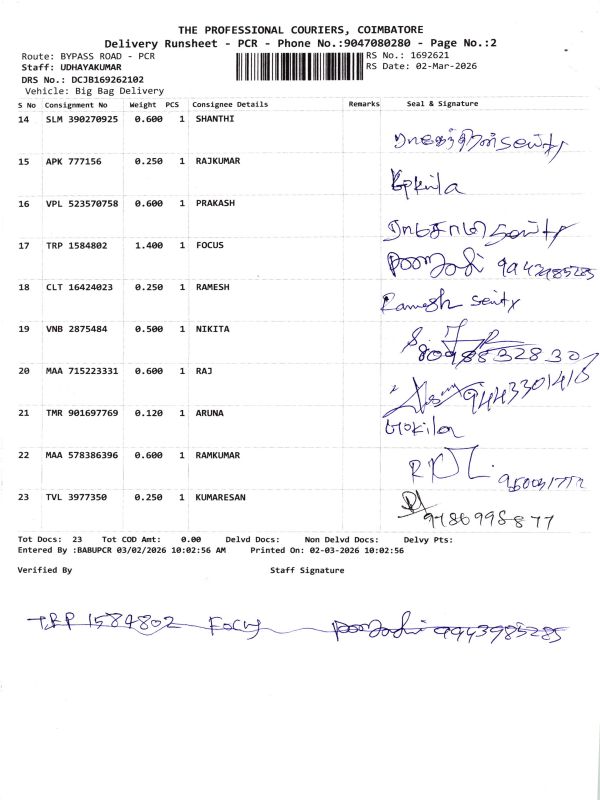 THE PROFESSIONAL COURIERS, COIMBATORE
Delivery Runsheet - PCR - Phone No.:9047080280 - Page No.:2
Route: BYPASS ROAD - PCR
RS No.: 1692621
Staff: UDHAYAKUMAR
RS Date: 02-Mar-2026
DRS No.: DCJB169262102
Vehicle: Big Bag Delivery
S No Consignment No Weight PCS Consignee Details Remarks Seal & Signature
14 SLM 390270925 0.600 1 SHANTHI
15 APK 777156 0.250 1 RAJKUMAR
Gokila
16 VPL 523570758 0.600 1 PRAKASH
17 TRP 1584802 1.400 1 FOCUS
9943985285
18 CLT 16424023 0.250 1 RAMESH
Ramesh
19 VNB 2875484 0.500 1 NIKITA
20 MAA 715223331 0.600 1 RAJ
9443301416
21 TMR 901697769 0.120 1 ARUNA
Gokila
22 MAA 578386396 0.600 1 RAMKUMAR
23 TVL 3977350 0.250 1 KUMARESAN
9786998877
Tot Docs: 23 Tot COD Amt: 0.00 Delvd Docs: Non Delvd Docs: Delvy Pts:
Entered By :BABUPCR 03/02/2026 10:02:56 AM Printed On: 02-03-2026 10:02:56
Verified By Staff Signature
TRP 1584802 Focus 9943985285